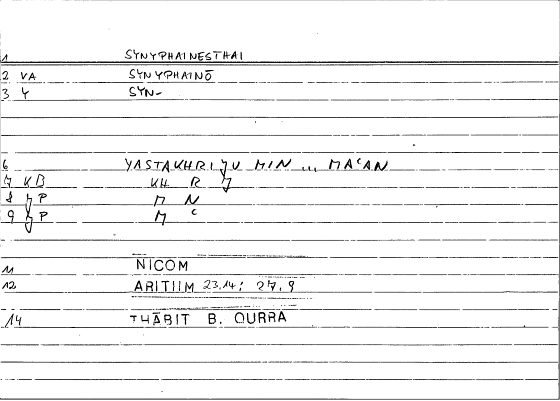 1 SYNYPHAINESTHAI
2 VA SYNYPHAINŌ
3 Y SYN-
6 YASTAKHRIJU MIN ... MAʿAN
7 KB KH R J
8 JP M N
9 JP M ʿ
11 NICOM
12 ARITHM 23,14; 27,9
14 THĀBIT B. QURRA